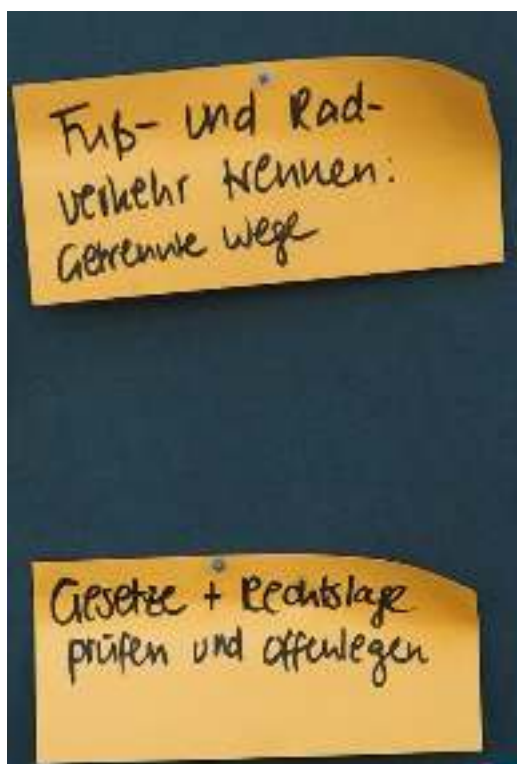 Fuß- und Rad-
verkehr trennen:
Getrennte Wege
Gesetze + Rechtslage
prüfen und offenlegen